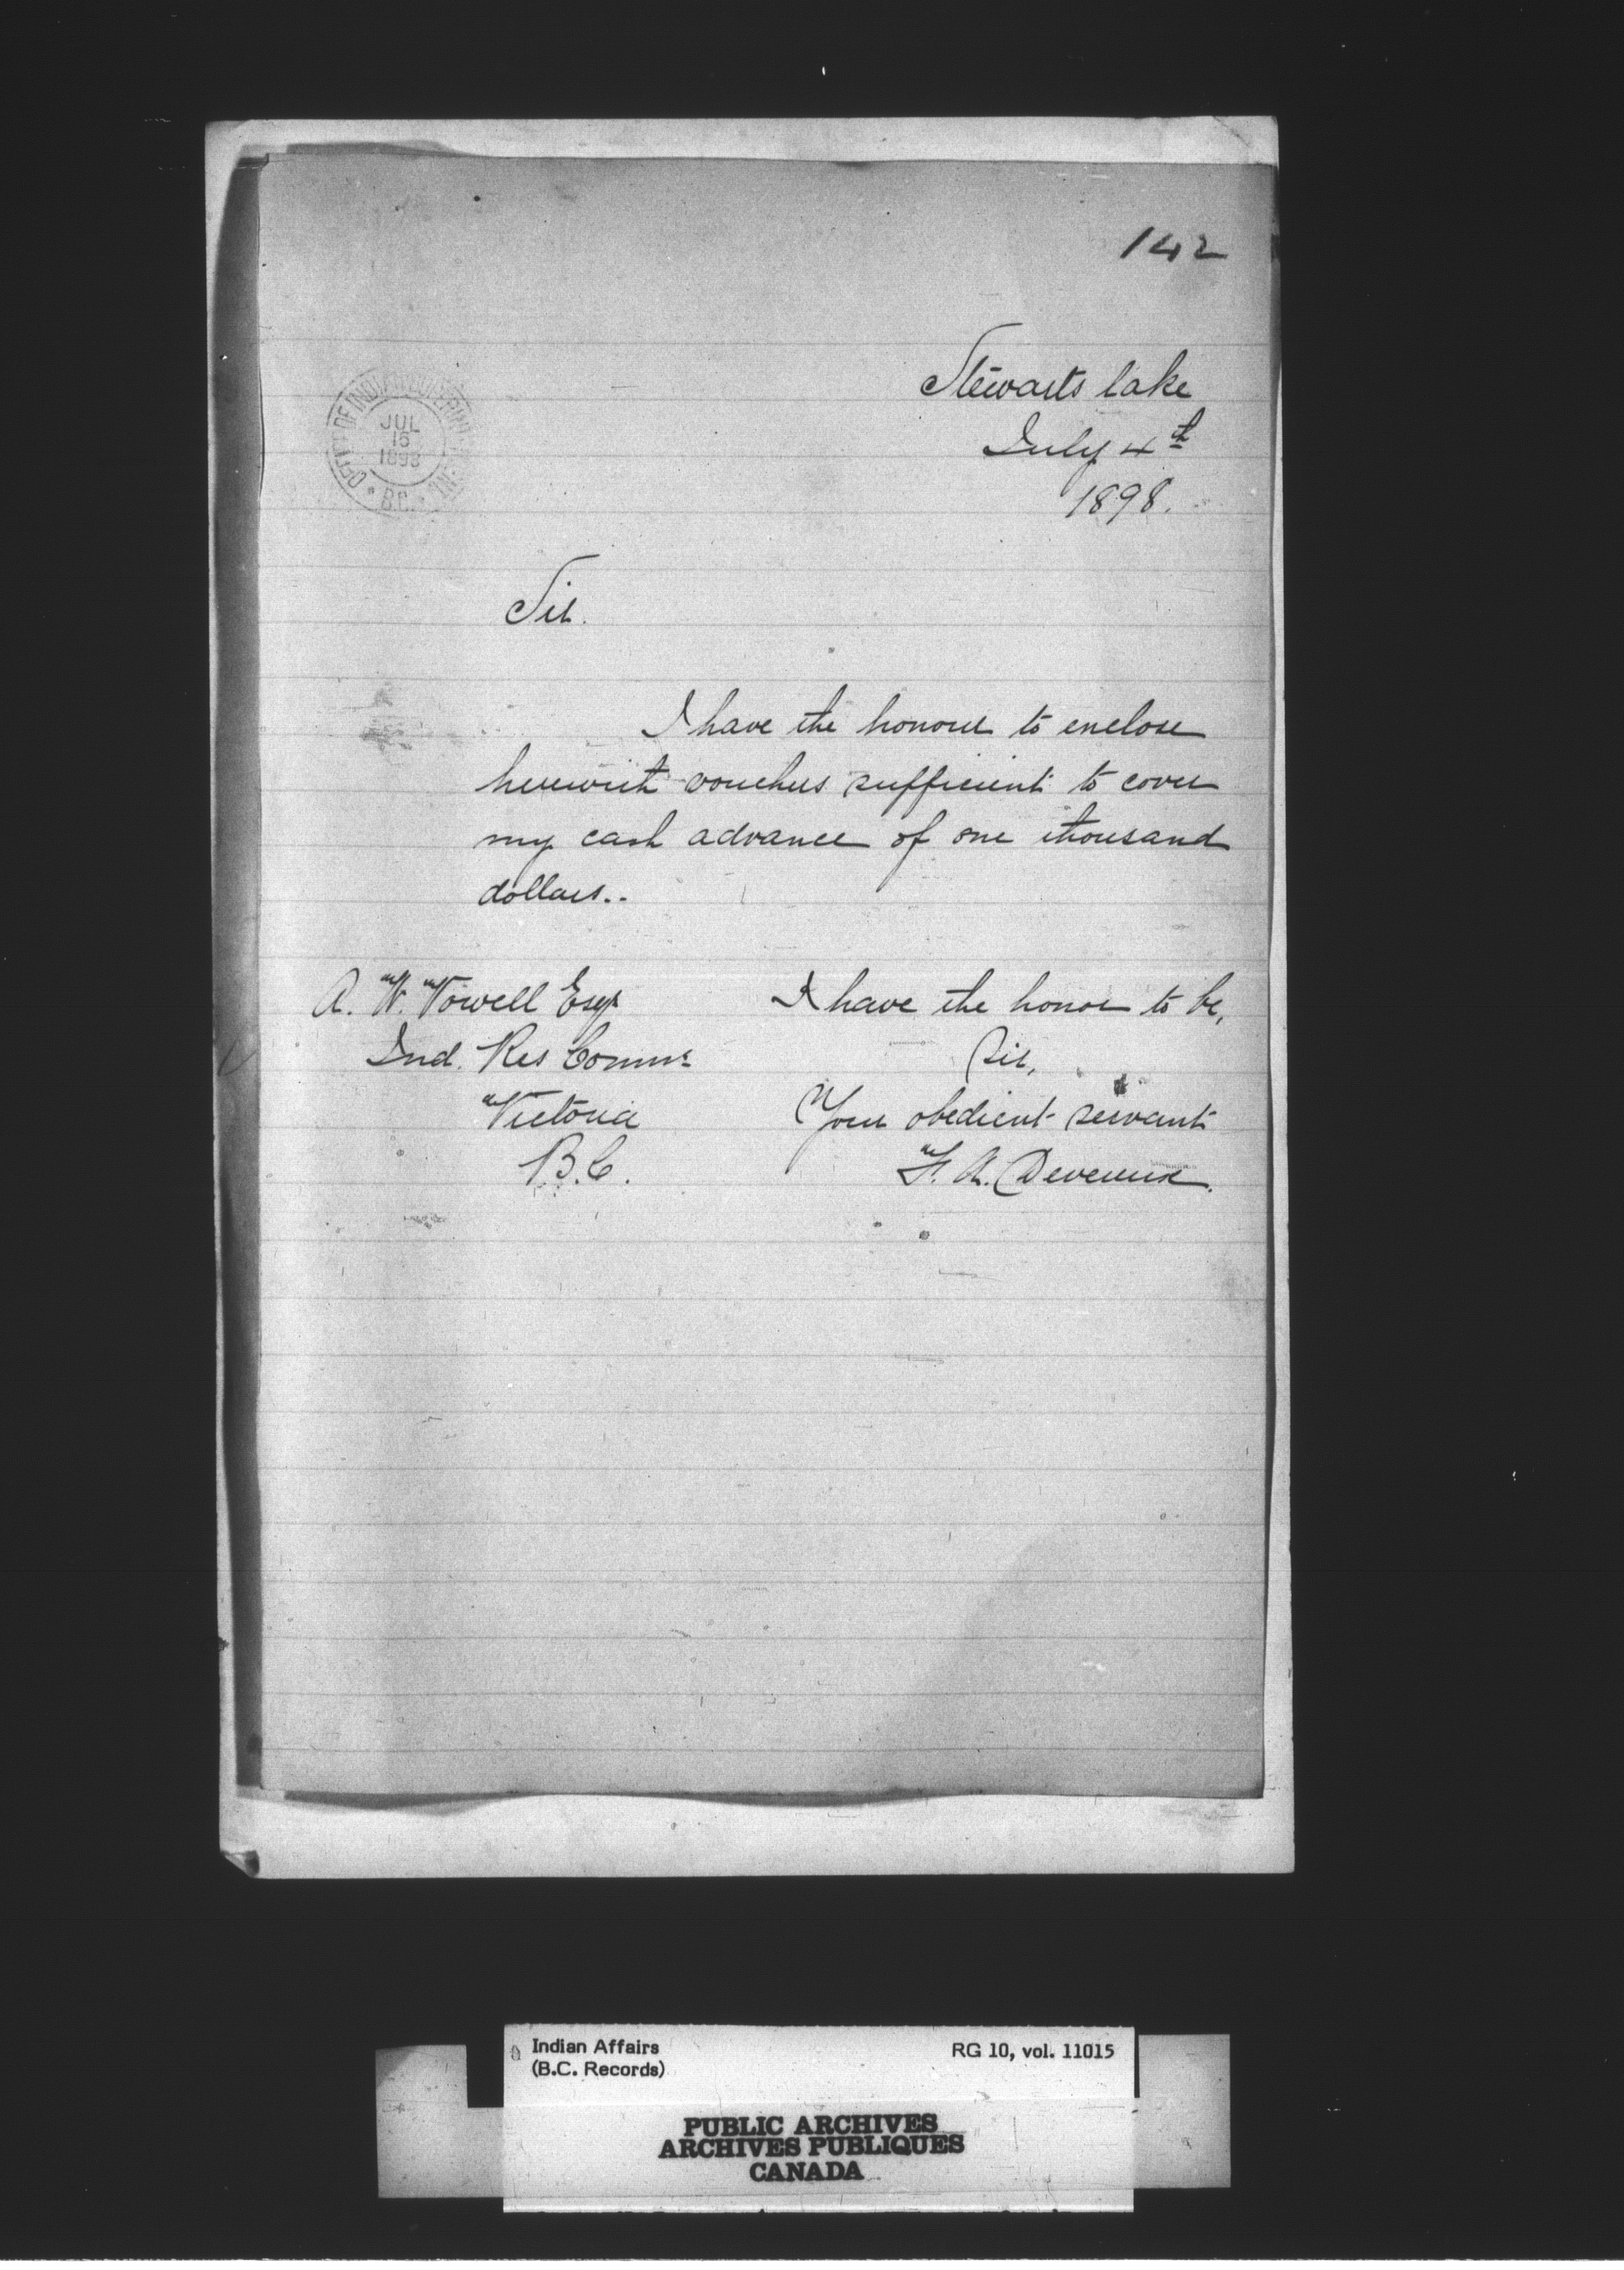 142
Stewarts lake
July 4th
1898.
OFFICE OF INDIAN
JUL
15
1898
B.C.
Sir.
I have the honour to enclose
herewith vouchers sufficient to cover
my cash advance of one thousand
dollars..
A. W. Vowell Esqr
Ind. Res Commr
Victoria
B.C.
I have the honor to be,
Sir,
Your obedient servant
F. A. Devereux.
Indian Affairs
(B.C. Records)
RG 10, vol. 11015
PUBLIC ARCHIVES
ARCHIVES PUBLIQUES
CANADA